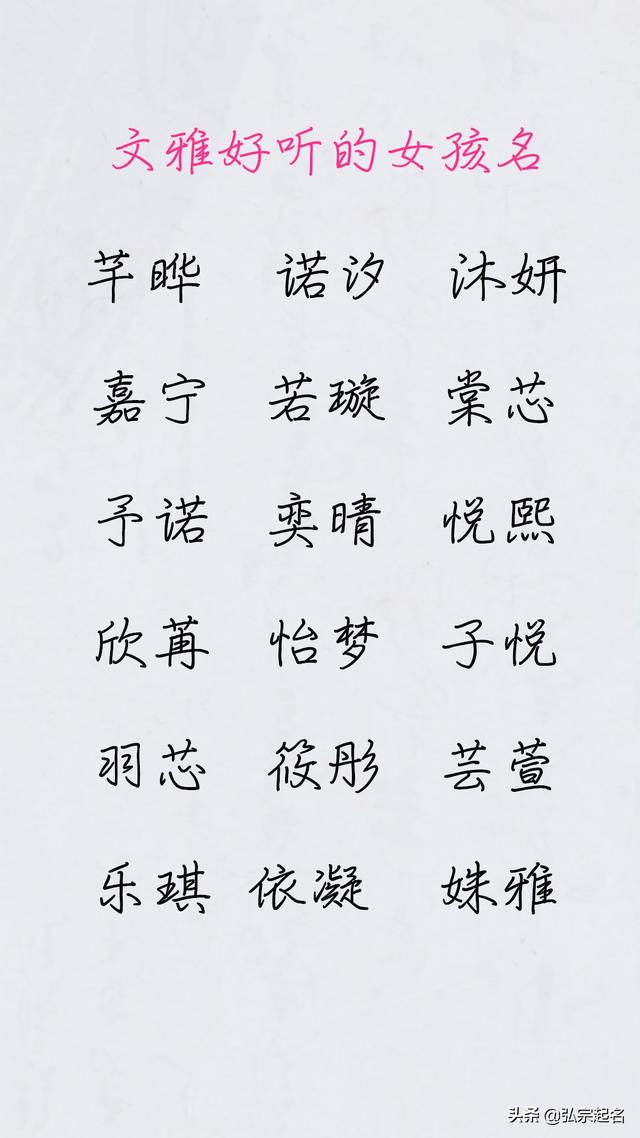 文雅好听的女孩名
芊晔 诺汐 沐妍
嘉宁 若璇 棠芯
予诺 奕晴 悦熙
欣苒 怡梦 子悦
羽芯 筱彤 芸萱
乐琪 依凝 姝雅
头条 @弘宗起名